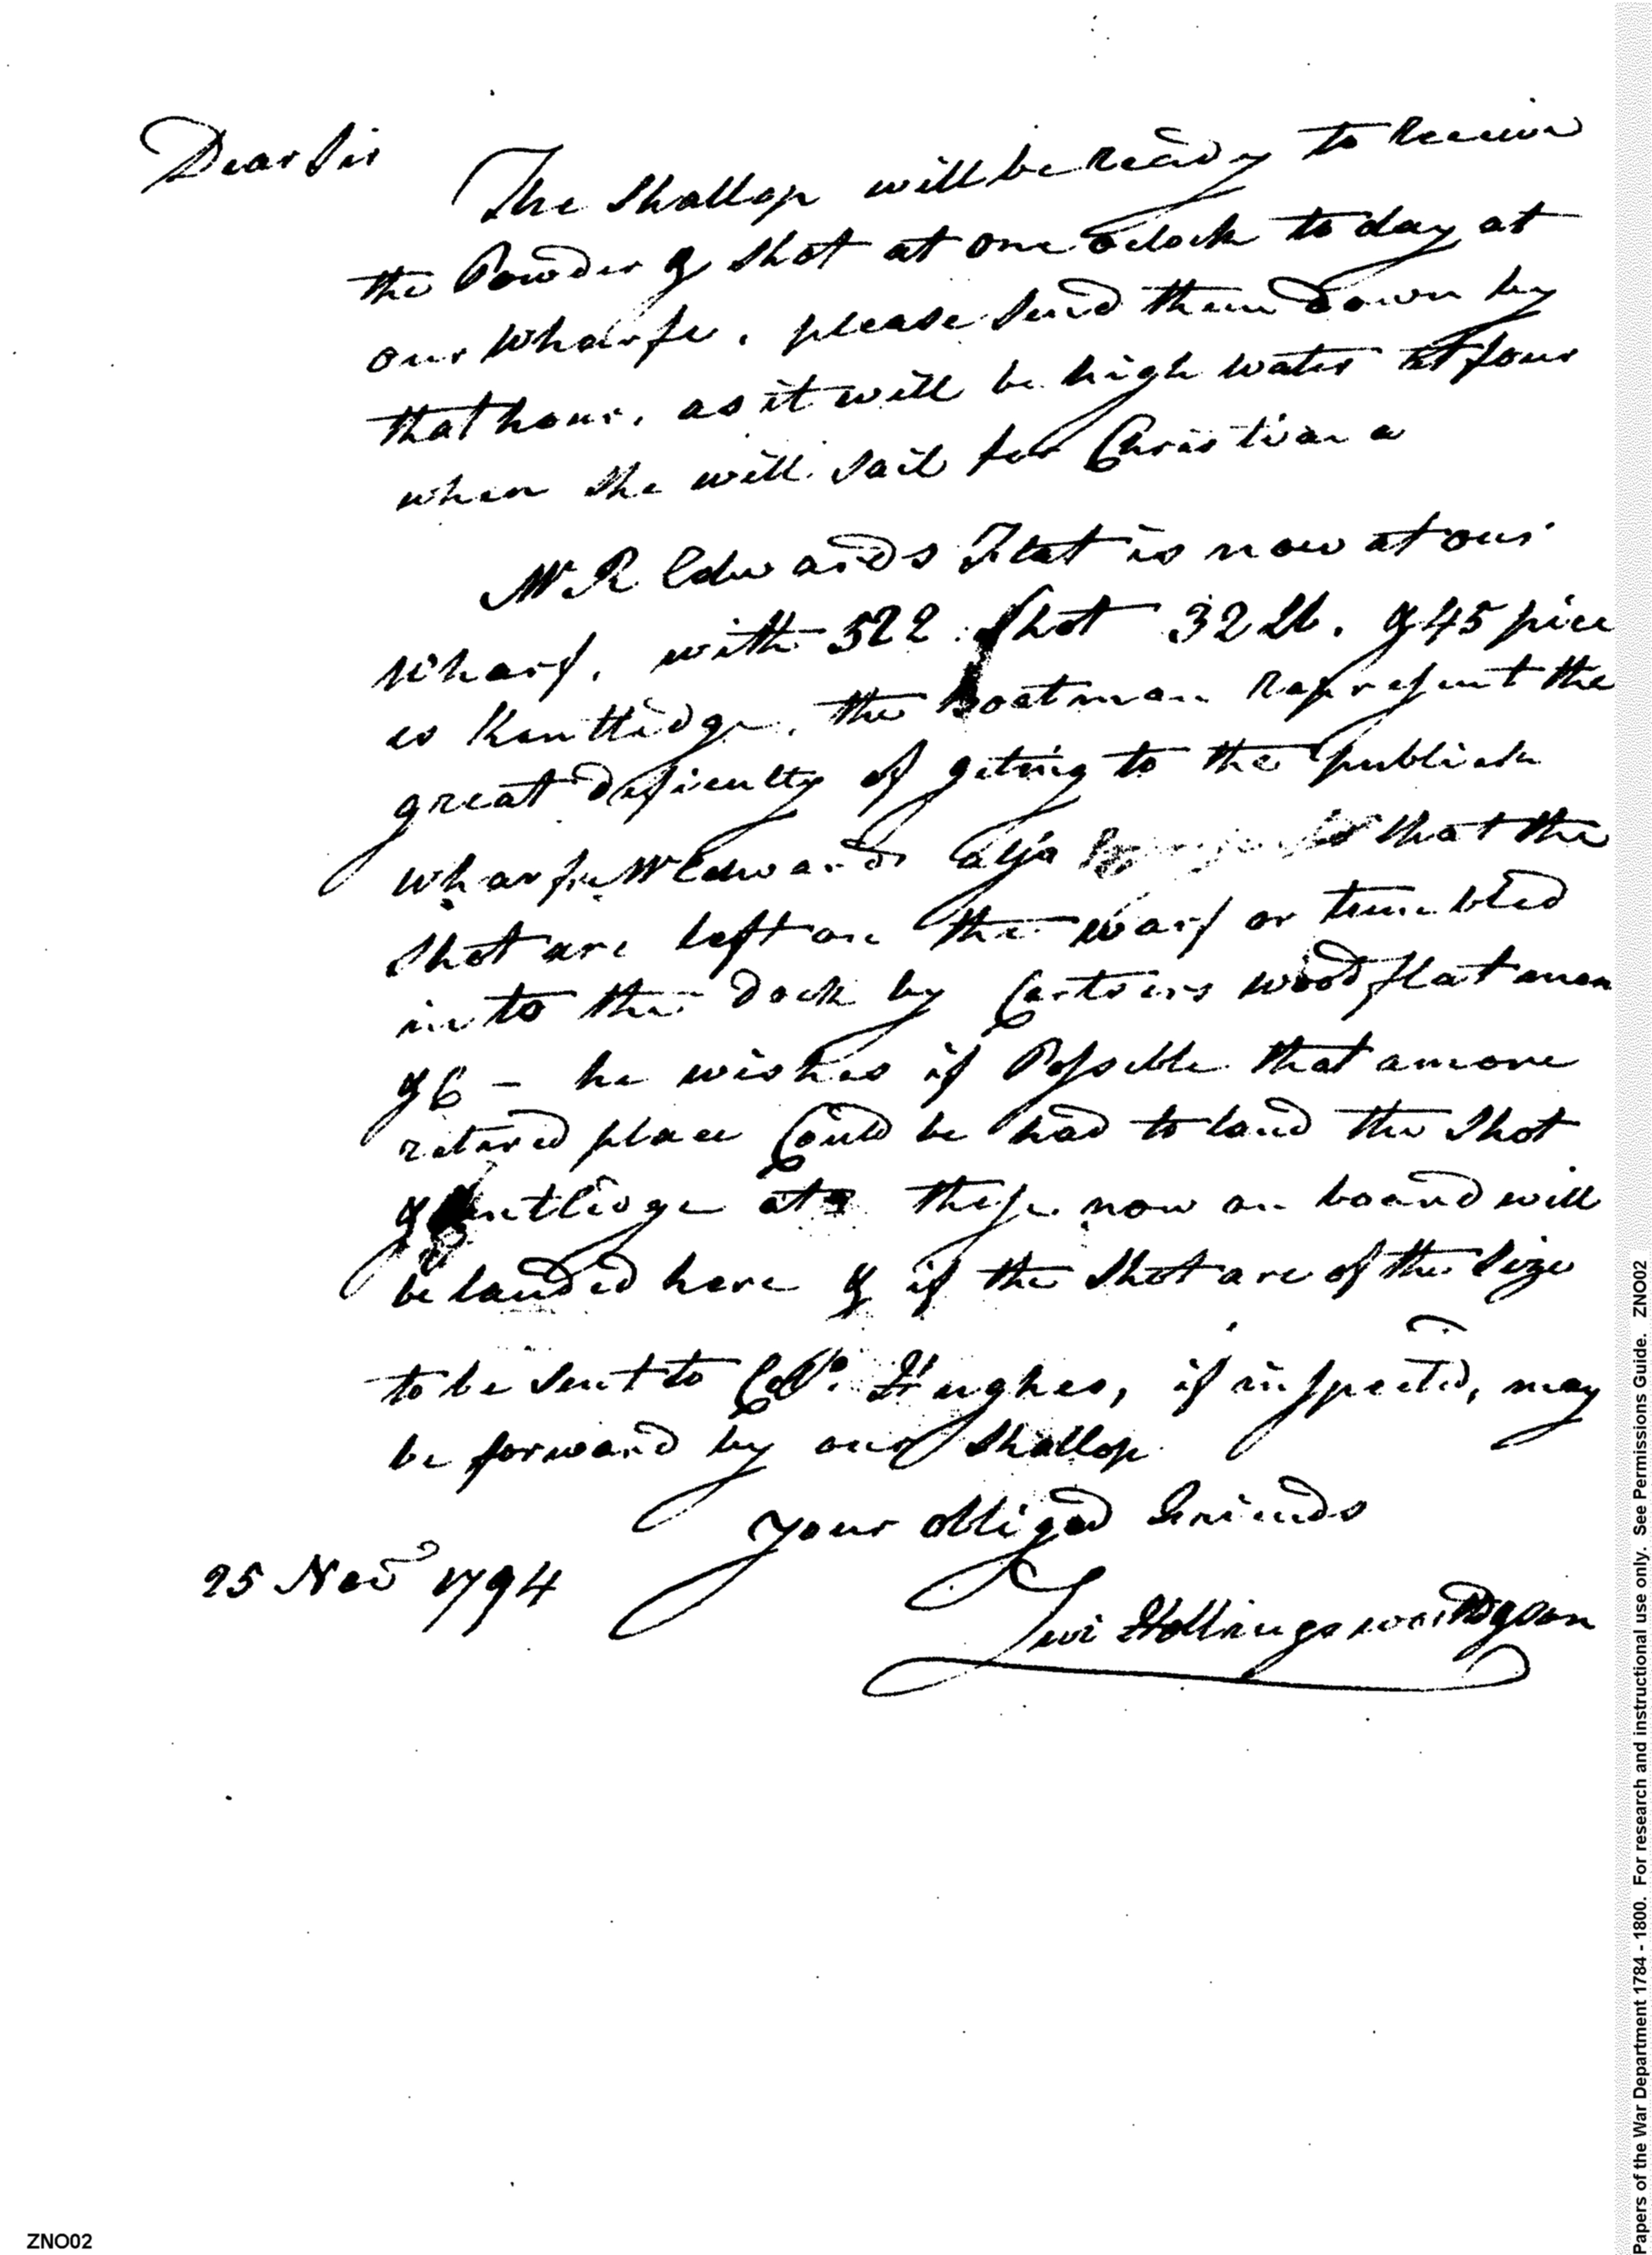 Dear Sir
The Shallop will be ready to receive
the Powder & Shot at one oclock to day at
our Wharfe, please Send them down by
that hour, as it will be high water at four
when She will Sail for Christiana
Mr R Edwards Flat is now at our
Wharf, with 522 Shot 32 lb. & 45 piec
es Kentlidge, the boatman Represent the
great dificulty of geting to the publick
wharfe, Mr Edwards also that the
Shot are left on the warf or tumbled
in to the Dock by Carters wood flat men
&C – he wishes if Possible that a more
retired place Could be had to land the Shot
& Kentlidge at, these now on board will
be landed here & if the Shot are of the Size
to be Sent to Coll. Hughes, if inspected, may
be forward by our Shallop
your obliged Friends
25 Nov 1794
Levi Hollingsworth & Son
Papers of the War Department 1784 - 1800. For research and instructional use only. See Permissions Guide. ZNO02
ZNO02